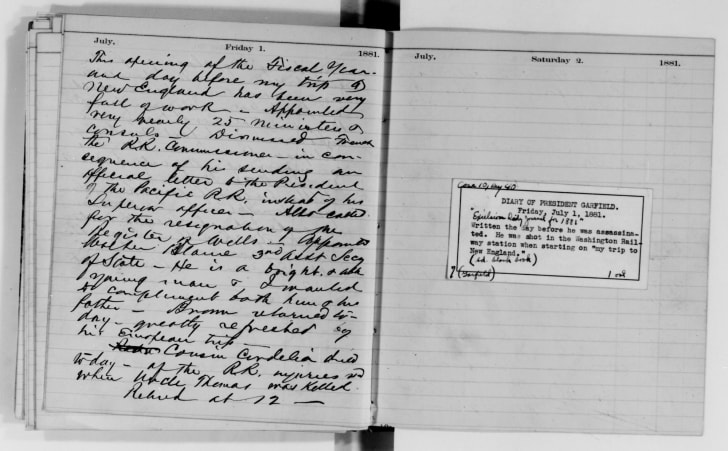 July. Friday 1. 1881.
This opening of the Fiscal Year.
and day before my trip to
New England has been very
full of work – Appointed
very nearly 25 ministers &
consuls – Dismissed French
the R.R. Commissioner – in con-
sequence of his sending an
official letter to the President
of the Pacific R.R. instead of his
superior officer – Also called
for the resignation of the
Register
Walker Blaine 3rd Asst Secy
of State – He is a bright & able
young man & I wanted
to compliment both him & his
father – Brown returned to-
day – greatly refreshed by
his European trip –
Cousin Cordelia died
to-day – of the R.R. injuries recd
when Uncle Thomas was killed.
Retired at 12 –
July. Saturday 2. 1881.
DIARY OF PRESIDENT GARFIELD.
Friday, July 1, 1881.
"Excelsior Daily Journal for 1881"
Written the day before he was assassina-
ted. He was shot in the Washington Rail-
way station when starting on "my trip to
New England."
(Garfield) 1 vol